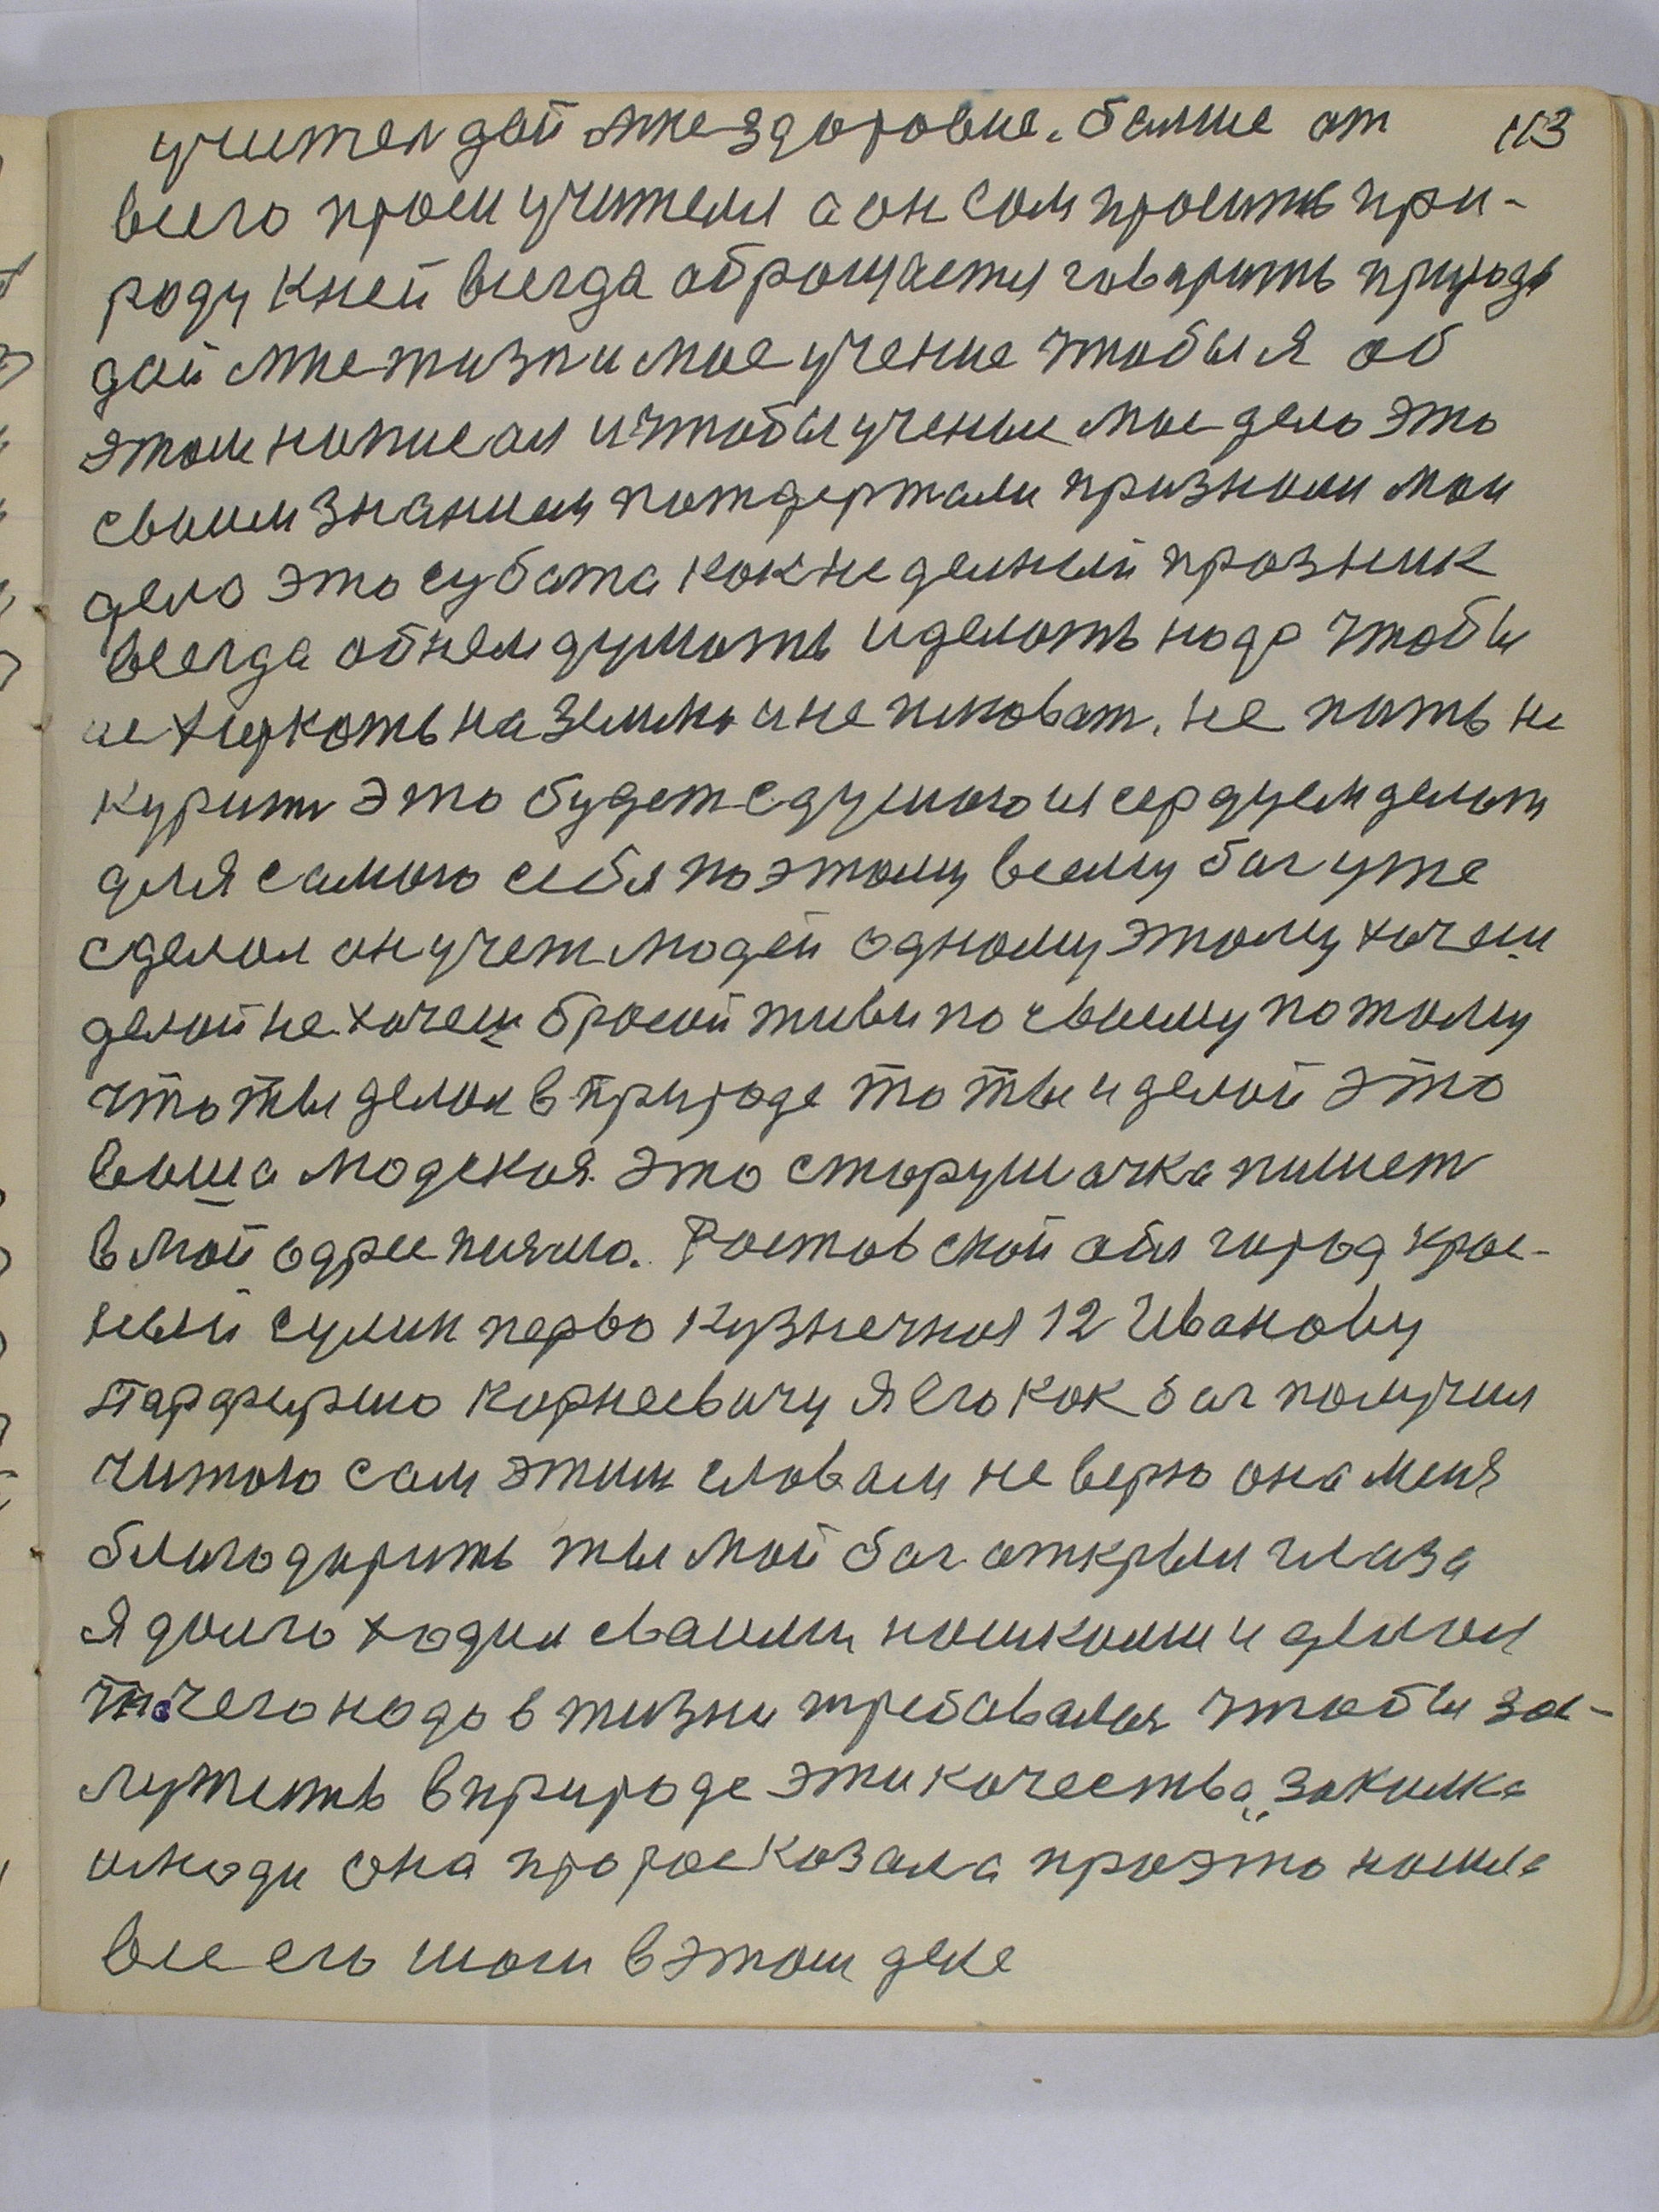 учител дай мне здоровие. балше ат 113
всего проси учителя а он сам просить при-
роду к ней всегда абращается гаварить природа
дай мне жизн и мае учение чтобы я об
этом написал и чтобы ученые мое дело это
своим знанием потдержали признали мои
дело это субата как не делный празник
всегда об нем думать и делать надо чтобы
не харкать на землю и не плюват. не пить не
курить это будет с душою и сердцем делат
для самого себя поэтому всему бог уже
сделал он учет людей одному этому хочеш
делай не хочеш бросай живи по своему потому
что ты делал в природе то ты и делай это
выша людская. это старушачка пишет
в мой адрес писмо. Ростовской обл город крас-
ный сулин перво кузнечная 12 Иванову
Парфирию Корнеевичу я его как бог получил
читаю сам этим словам не верю она меня
благодарить ты мой бог аткрыл глаза
я долго ходил своими ношками и делал
то чего надо в жизни требавалая чтобы зас-
лужить в природе эти качества, закалка
и люди она про расказала про это нашла
все его шаги в этом деле